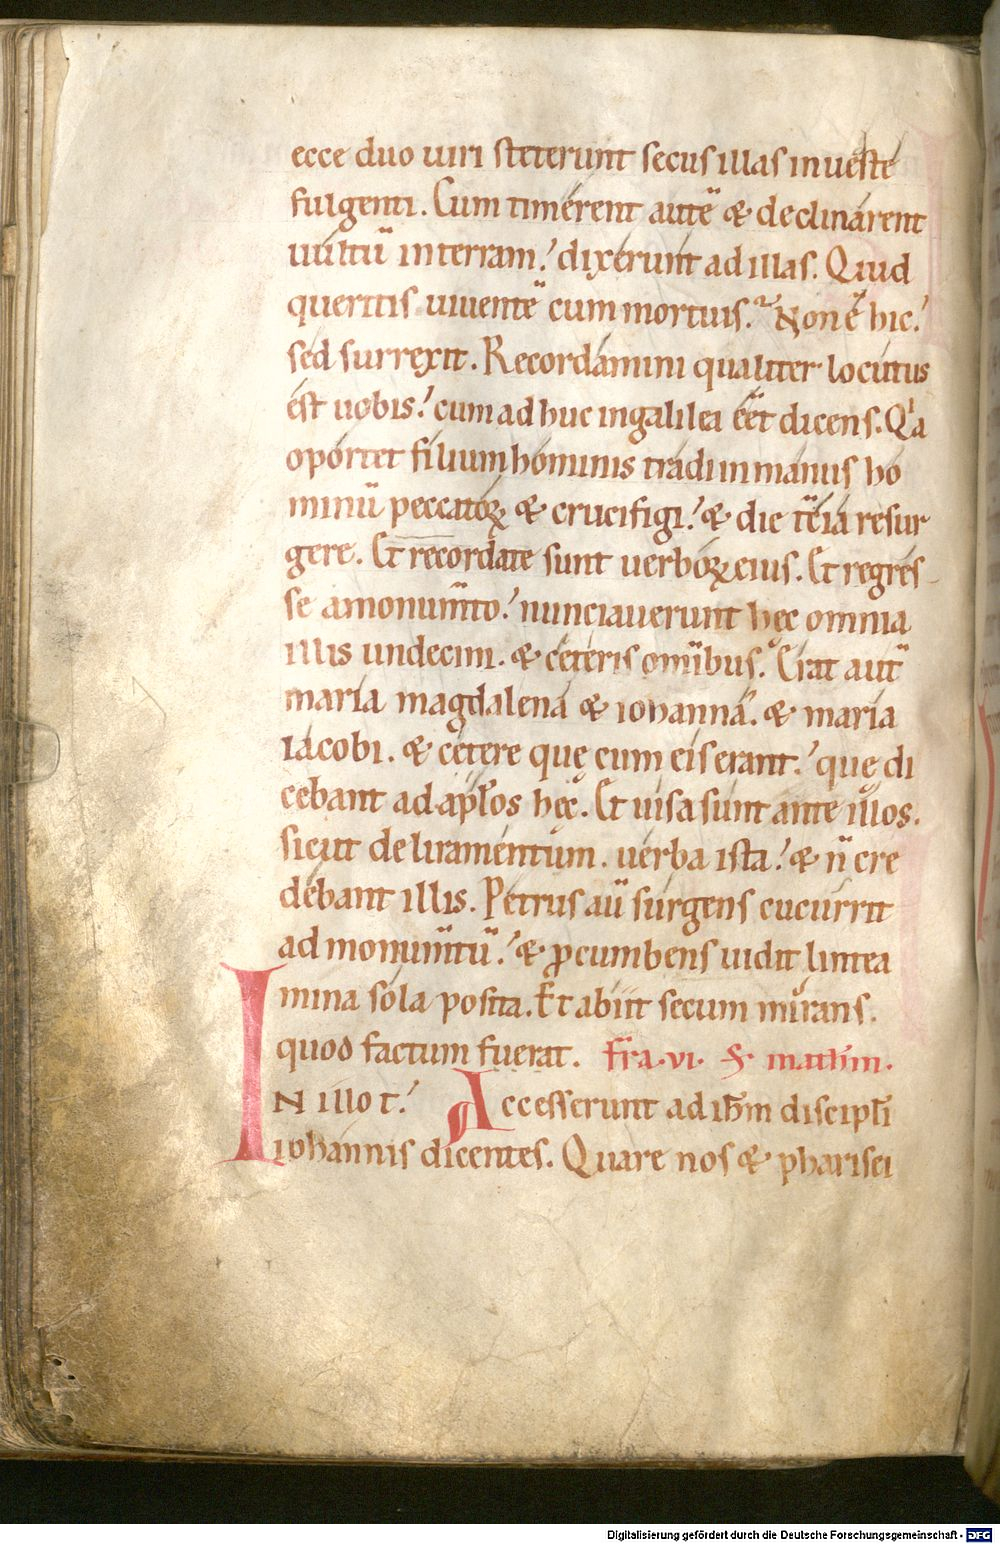 ecce duo uiri steterunt secus illas in ueste
fulgenti. Cum timerent autē & declinarent
uultū in terram. dixerunt ad illas. Quid
queritis uiuentē cum mortuis. Non ē hic.
sed surrexit. Recordamini qualiter locutus
est uobis. cum ad huc in galilea eēt dicens. Qͥa
oportet filium hominis tradi in manus ho
minū peccatoꝝ & crucifigi. & die t̄cia resur
gere. Et recordate sunt uerboꝝ eius. Et regres
se a monum̄to. nunciauerunt hęc omnia
illis undecim. & ceteris om̄ibus. Erat aut̄
maria magdalena & iohanna. & maria
iacobi. & cetere quę cum eis erant. quę di
cebant ad apl̄os hęc. Et uisa sunt ante illos.
sicut deliramentum. uerba ista. & n̄ cre
debant illis. Petrus aū surgens cucurrit
ad monum̄tū. & ꝓcumbens uidit lintea
mina sola posita. Et abiit secum mirans.
quod factum fuerat. fr̄a. vi. S. math̄m.
IN illo t. Accesserunt ad ih̄m discipl̄i
iohannis dicentes. Quare nos & pharisei
Digitalisierung gefördert durch die Deutsche Forschungsgemeinschaft - DFG